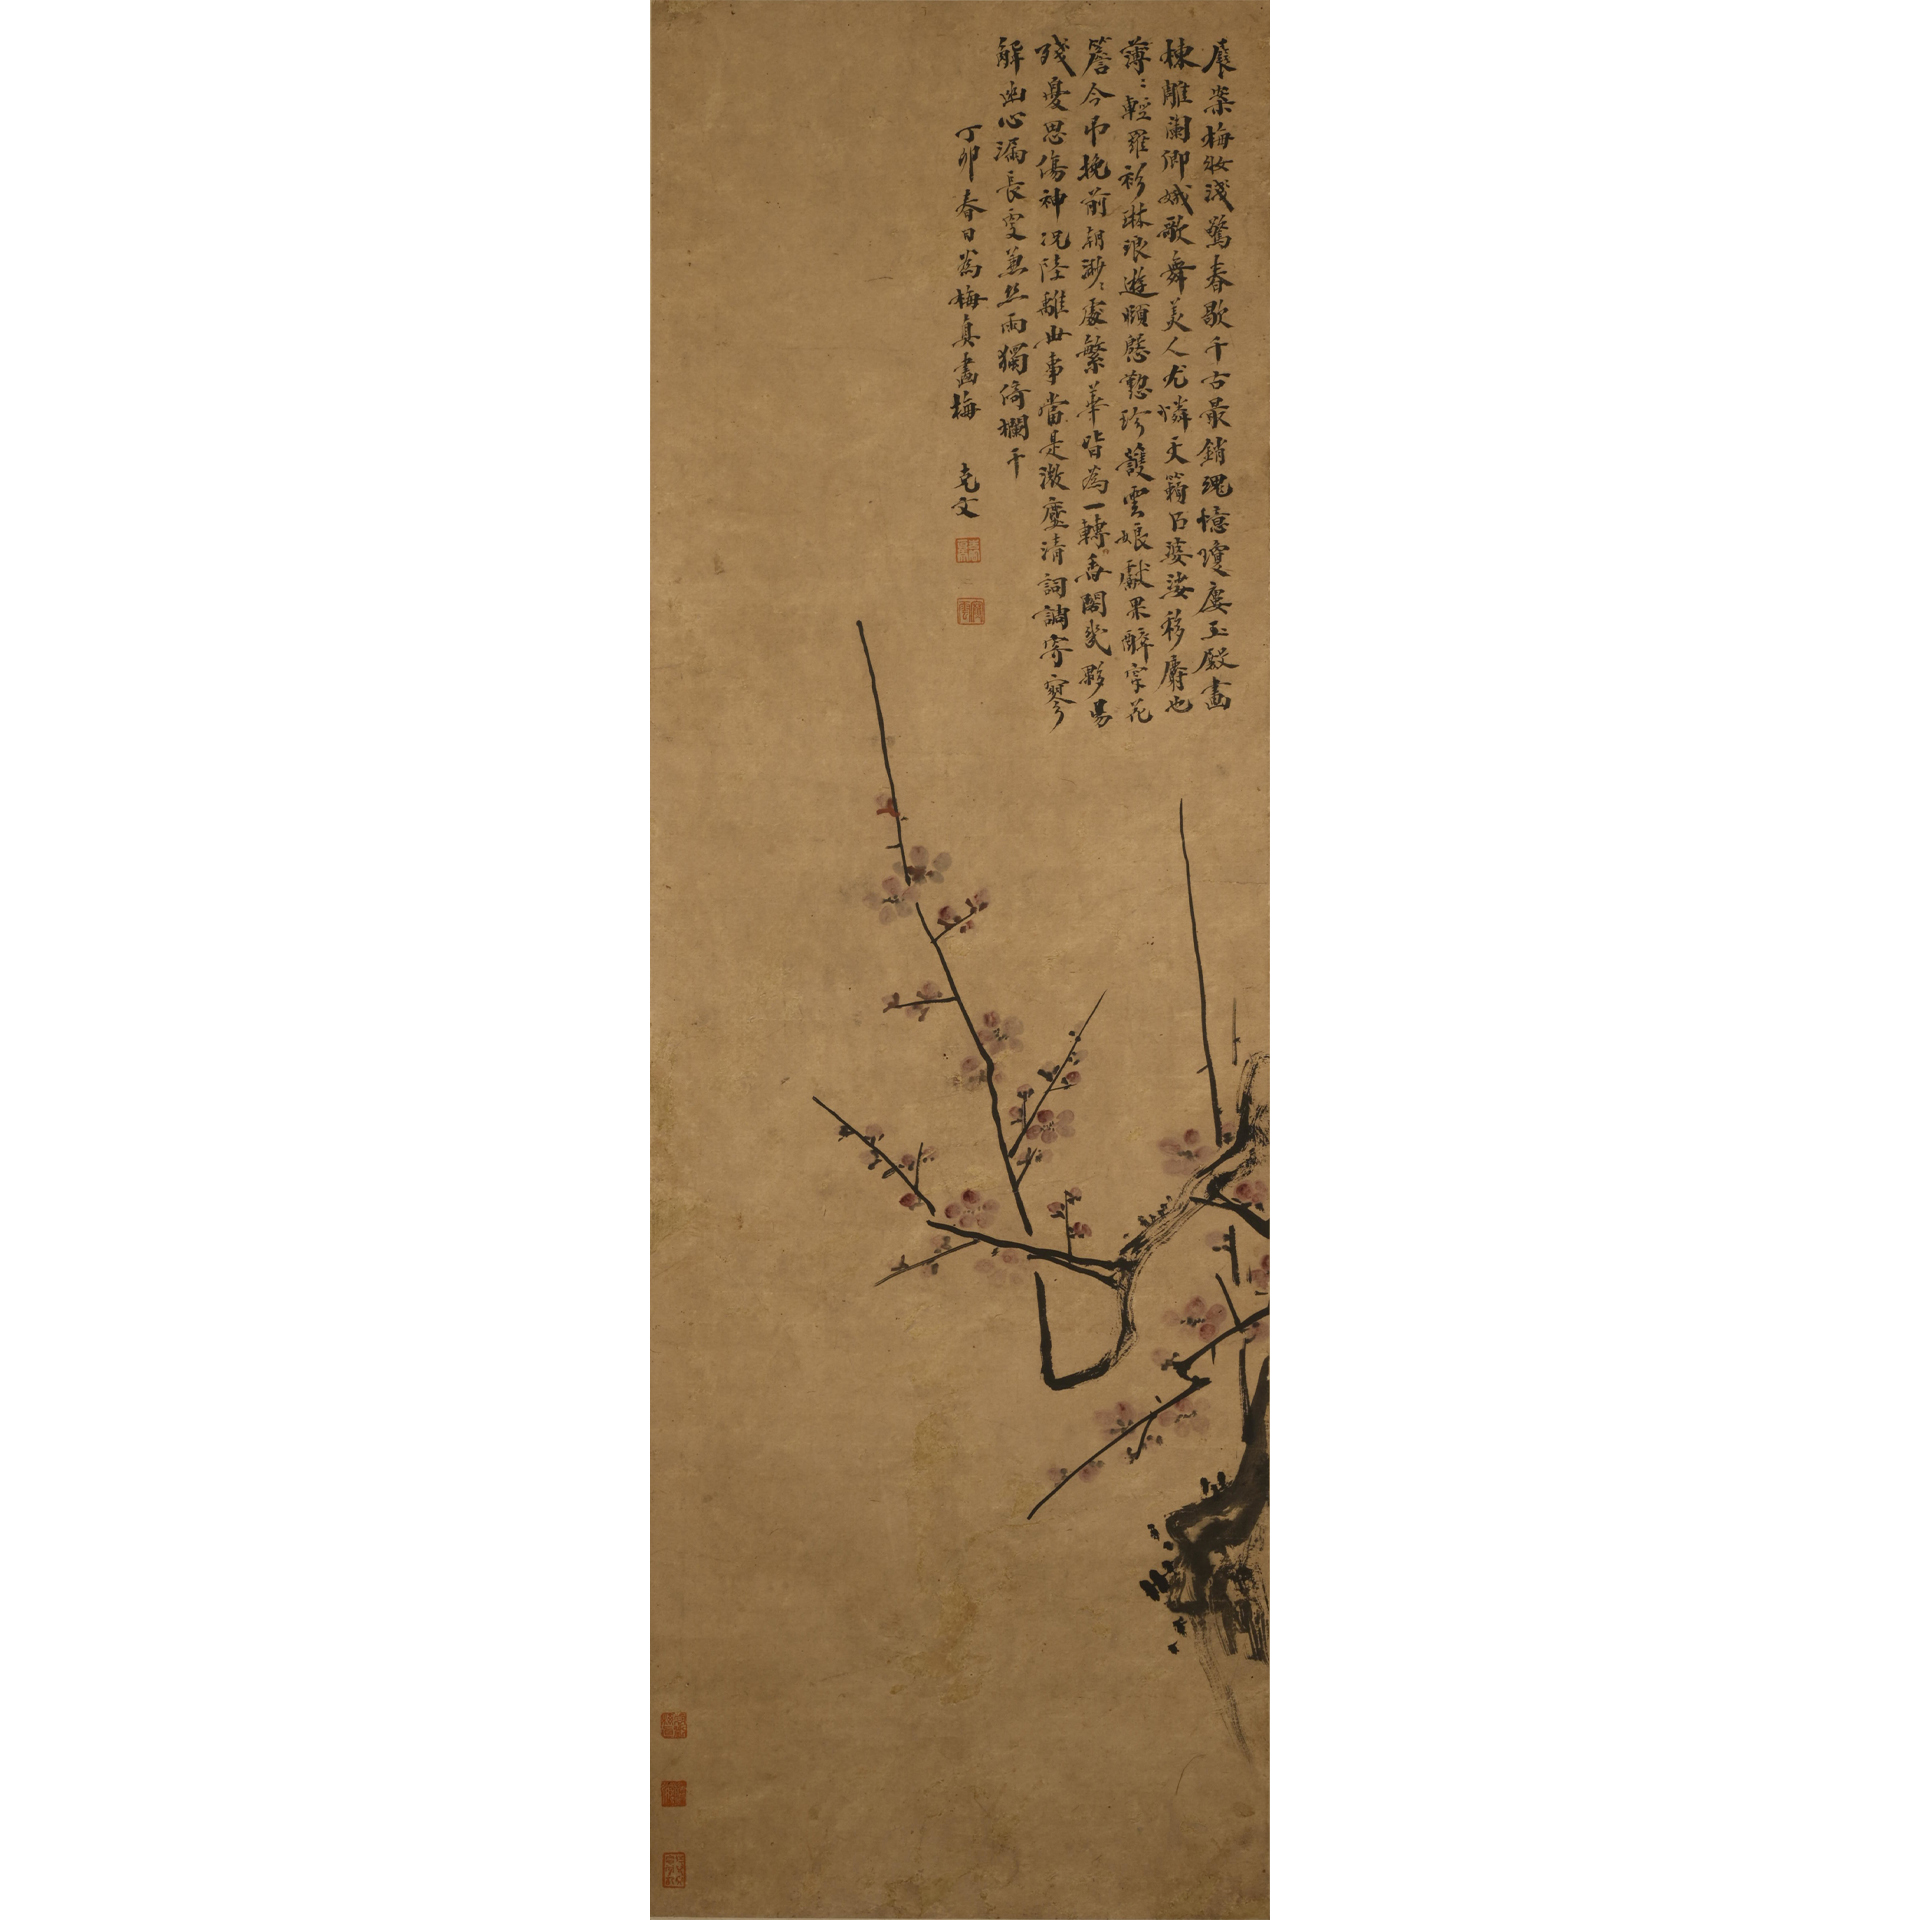 屧縈梅妝淺驚春歇千古最銷魂憶瓊廔玉殿畫
棟雕闌卿娥歌舞美人尤憐天籟召婆娑移麝也
薄〻輕羅衫琳琅遊頤慇懃珍護雲娘獻果醉宰花
簷今吊挽前朝渺〻處繁華皆為一轉香閣幾夥易
殘憂思傷神況陸離世事當是激塵清詞謫寄寥
解幽心漏長雯蕙丝雨獨倚欄干
丁卯春日為梅真畫梅 克文